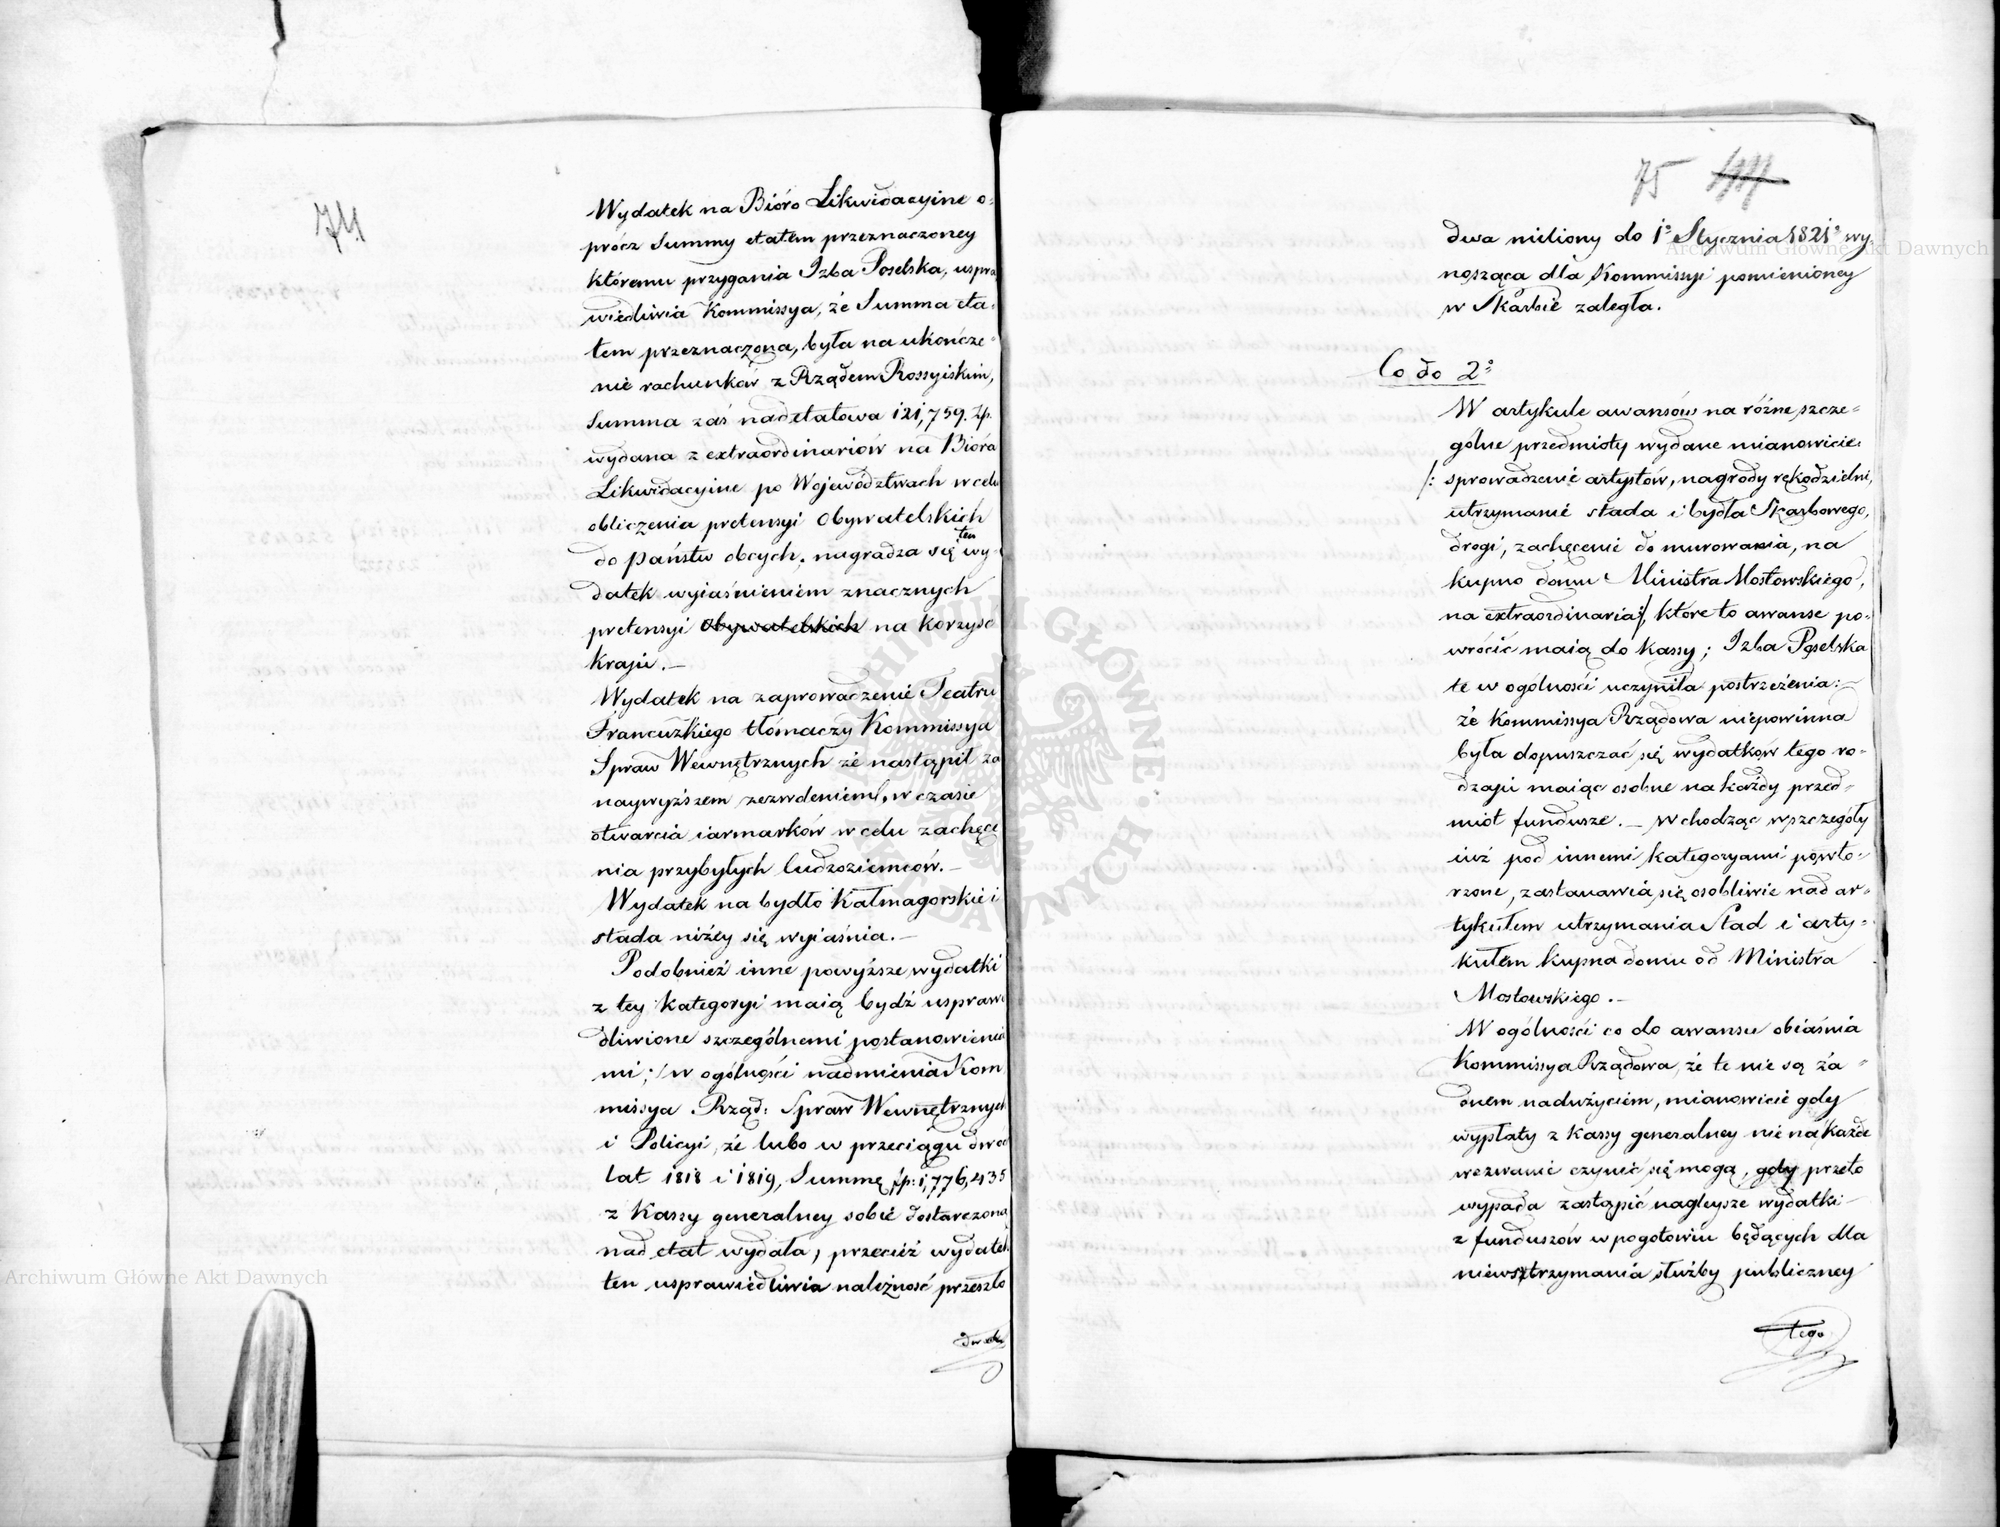 74
Wydatek na Bióro Likwidacyine o-
prócz Summy etatem przeznaczoney
któremu przygania Izba Poselska, uspra
wiedliwia Kommissya, że Summa eta-
tem przeznaczona, była na ukończe-
nie rachunków z Rządem Rossyiskim,
Summa zaś nadetatowa 121,759. Zp.
wydana z extraordinariów na Bióra
Likwidacyine po Województwach w celu
obliczenia pretensyi Obywatelskich
do państw obcych, nagradza się ten wy-
datek wyiaśnieniem znacznych
pretensyi Obywatelskich na korzyść
kraju.—
Wydatek na zaprowadzenie Teatru
Francuzkiego tłómaczy Kommissya
Spraw Wewnętrznych że nastąpił za
naywyższem zezwoleniem, w czasie
otwarcia iarmarków w celu zachęce
nia przybyłych cudzoziemców.—
Wydatek na bydło Kałmagorskie i
stada niżey się wyiaśnia.—
Podobnież inne powyższe wydatki
z tey kategoryi maią bydź usprawie
dliwione szczególnemi postanowienia
mi; w ogólności nadmienia Kom
missya Rząd: Spraw Wewnętrznych
i Policyi, że lubo w przeciągu dwóch
lat 1818 i 1819, Summę fp: 1,776,435
z Kassy generalney sobie dostarczoną
nad etat wydała, przecież wydatek
ten usprawiedliwia należność przeszło
dwa
75
dwa miliony do 1° Stycznia 1821° wy-
nosząca dla Kommissyi pomienioney
w Skarbie zaległa.
Co do 2°
W artykule awansów na różne szcze-
gólne przedmioty wydane mianowicie
/: sprowadzenie artystów, nagrody rękodzielni,
utrzymanie stada i bydła Skarbowego,
drogi, zachęcenie do murowania, na
kupno domu Ministra Mostowskiego,
na extraordinaria :/ które to awanse po-
wrócić maią do kassy; Izba Poselska
te w ogólności uczyniła postrzeżenia:—
że Kommissya Rządowa niepowinna
była dopuszczać się wydatków tego ro-
dzaju maiąc osobne na każdy przed-
miot fundusze.— Wchodząc w szczegóły
iuż pod innemi kategoryami powtó-
rzone, zastanawia się osobliwie nad ar-
tykułem utrzymania Stad i arty-
kułem kupna domu od Ministra
Mostowskiego.—
W ogólności co do awansu obiaśnia
Kommissya Rządowa, że te nie są ża-
dnem nadużyciem, mianowicie gdy
wypłaty z kassy generalney nie na każde
wezwanie czynić się mogą, gdy przeto
wypada zastąpić nagleysze wydatki
z funduszów w pogotowiu będących dla
niewstrzymania służby publiczney
tego
Archiwum Główne Akt Dawnych
Archiwum Główne Akt Dawnych
ARCHIWUM GŁÓWNE AKT DAWNYCH